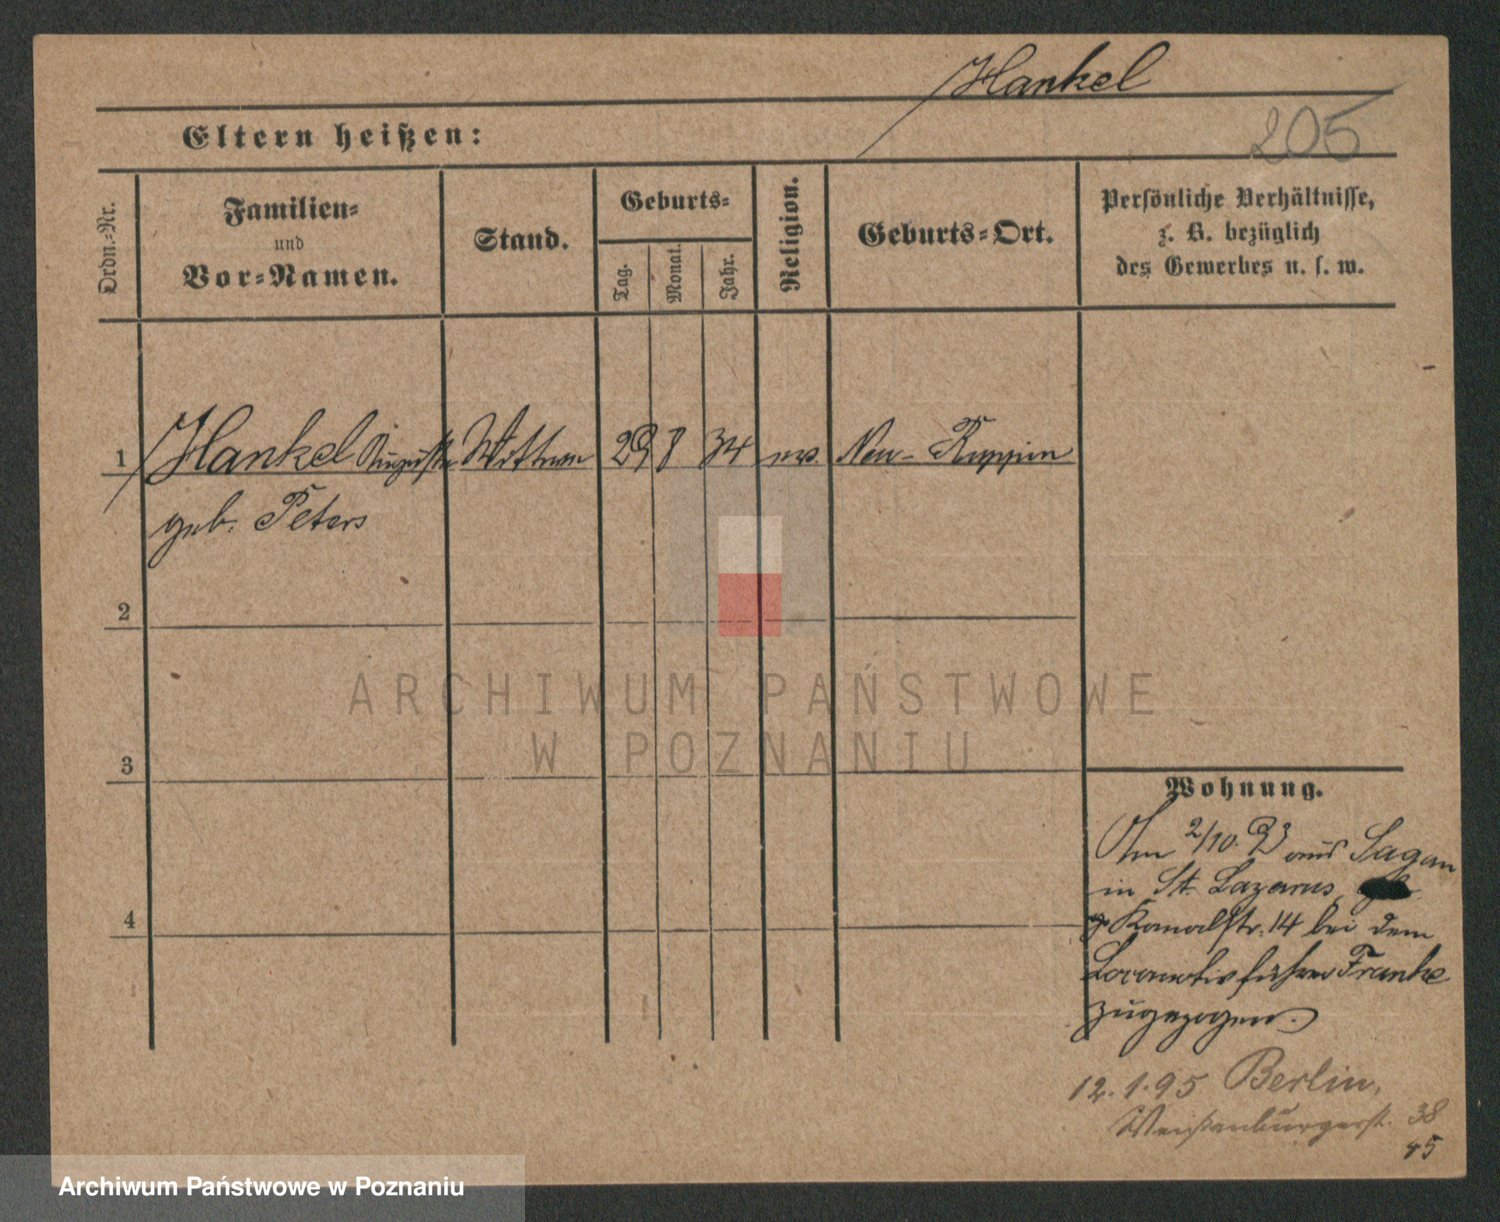 Hankel
205
Eltern heißen:
Ordn.-Nr.
Familien-
und
Vor-Namen.
Stand.
Geburts-
Tag.
Monat.
Jahr.
Religion.
Geburts-Ort.
Persönliche Verhältnisse,
z. B. bezüglich
des Gewerbes u. s. w.
1 Hankel Auguste Wittwe 29 8 34 ev. Neu-Ruppin
geb. Peters
2
3
4
ARCHIWUM PAŃSTWOWE
W POZNANIU
Wohnung.
Am 2/10. 93 aus Sagan
in St. Lazarus
Kanalstr. 14 bei dem
Locomotivführer Franke
zugezogen.
12.1.95 Berlin,
Weißenburgerst. 38
Archiwum Państwowe w Poznaniu